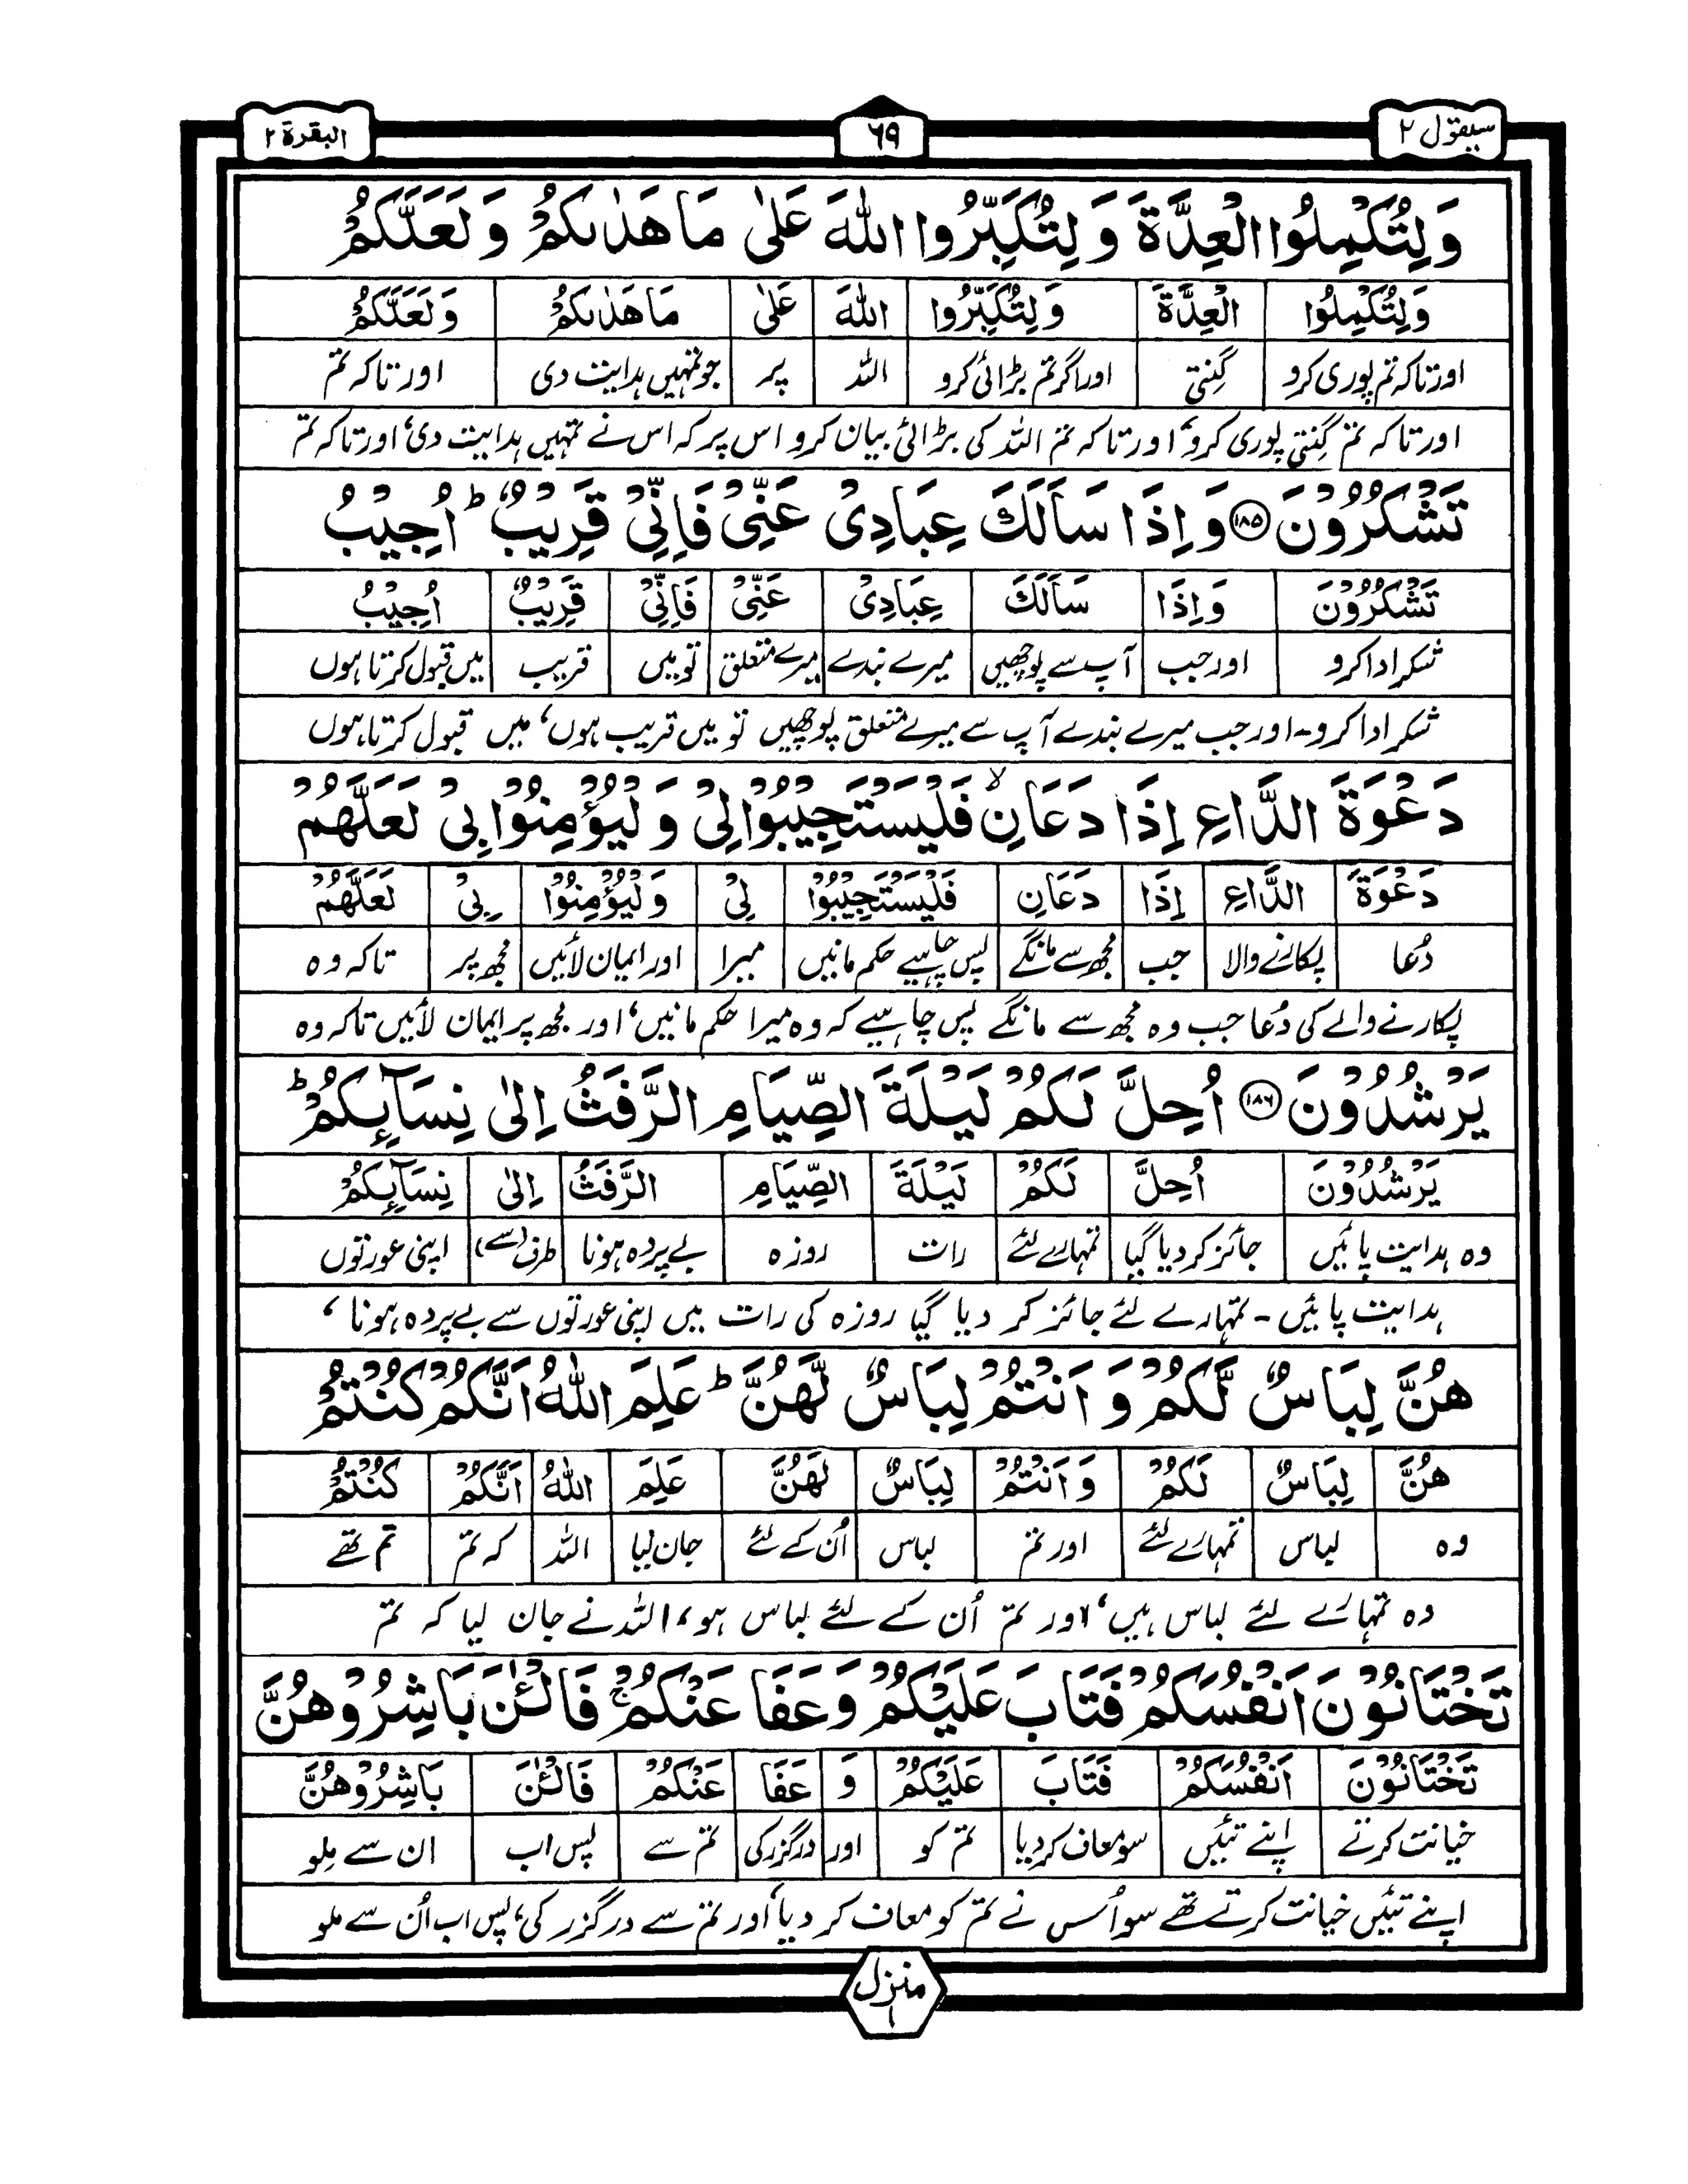 سیقول ۲
٦٩
البقرة ۲
وَلِتُكْمِلُوا الْعِدَّةَ وَ لِتُكَبِّرُوا اللّٰهَ عَلٰى مَا هَدٰىكُمْ وَ لَعَلَّكُمْ
وَلِتُكْمِلُوا الْعِدَّةَ وَلِتُكَبِّرُوا اللّٰهَ عَلٰى مَا هَدٰىكُمْ وَلَعَلَّكُمْ
اور تاکہ تم پوری کرو گِنتی اور اگر تم بڑائی کرو اللہ پر جو تمہیں ہدایت دی اور تاکہ تم
اور تاکہ تم گِنتی پوری کرو، اور تاکہ تم اللہ کی بڑائی بیان کرو اس پر کہ اس نے تمہیں ہدایت دی، اور تاکہ تم
تَشْكُرُوْنَ ۱۸۵ وَ اِذَا سَاَلَكَ عِبَادِیْ عَنِّیْ فَاِنِّیْ قَرِیْبٌ ؕ اُجِیْبُ
تَشْكُرُوْنَ وَاِذَا سَاَلَكَ عِبَادِیْ عَنِّیْ فَاِنِّیْ قَرِیْبٌ اُجِیْبُ
شکر ادا کرو اور جب آپ سے پوچھیں میرے بندے میرے متعلق تو میں قریب میں قبول کرتا ہوں
شکر ادا کرو۔ اور جب میرے بندے آپ سے میرے متعلق پوچھیں تو میں قریب ہوں، میں قبول کرتا ہوں
دَعْوَةَ الدَّاعِ اِذَا دَعَانِ ۙ فَلْیَسْتَجِیْبُوْا لِیْ وَ لْیُؤْمِنُوْا بِیْ لَعَلَّهُمْ
دَعْوَةَ الدَّاعِ اِذَا دَعَانِ فَلْیَسْتَجِیْبُوْا لِیْ وَلْیُؤْمِنُوْا بِیْ لَعَلَّهُمْ
دُعا پکارنے والا جب مجھ سے مانگے پس چاہیے حکم مانیں میرا اور ایمان لائیں مجھ پر تاکہ وہ
پکارنے والے کی دُعا جب وہ مجھ سے مانگے پس چاہیے کہ وہ میرا حکم مانیں، اور مجھ پر ایمان لائیں تاکہ وہ
یَرْشُدُوْنَ ۱۸۶ اُحِلَّ لَكُمْ لَیْلَةَ الصِّیَامِ الرَّفَثُ اِلٰى نِسَآىِٕكُمْ ؕ
یَرْشُدُوْنَ اُحِلَّ لَكُمْ لَیْلَةَ الصِّیَامِ الرَّفَثُ اِلٰى نِسَآىِٕكُمْ
وہ ہدایت پائیں جائز کر دیا گیا تمہارے لئے رات روزہ بے پردہ ہونا طرف (سے) اپنی عورتوں
ہدایت پائیں۔ تمہارے لئے جائز کر دیا گیا روزہ کی رات میں اپنی عورتوں سے بے پردہ ہونا،
هُنَّ لِبَاسٌ لَّكُمْ وَ اَنْتُمْ لِبَاسٌ لَّهُنَّ ؕ عَلِمَ اللّٰهُ اَنَّكُمْ كُنْتُمْ
هُنَّ لِبَاسٌ لَكُمْ وَ اَنْتُمْ لِبَاسٌ لَهُنَّ عَلِمَ اللّٰهُ اَنَّكُمْ كُنْتُمْ
وہ لباس تمہارے لئے اور تم لباس اُن کے لئے جان لیا اللہ کہ تم تم تھے
وہ تمہارے لئے لباس ہیں، اور تم اُن کے لئے لباس ہو، اللہ نے جان لیا کہ تم
تَخْتَانُوْنَ اَنْفُسَكُمْ فَتَابَ عَلَیْكُمْ وَ عَفَا عَنْكُمْ ۚ فَالْـٰٔنَ بَاشِرُوْهُنَّ
تَخْتَانُوْنَ اَنْفُسَكُمْ فَتَابَ عَلَیْكُمْ وَ عَفَا عَنْكُمْ فَالْـٰٔنَ بَاشِرُوْهُنَّ
خیانت کرتے اپنے تئیں سو معاف کر دیا تم کو اور درگزر کی تم سے پس اب ان سے مِلو
اپنے تئیں خیانت کرتے تھے سو اُس نے تم کو معاف کر دیا، اور تم سے درگزر کی، پس اب اُن سے ملو
منزل ۱